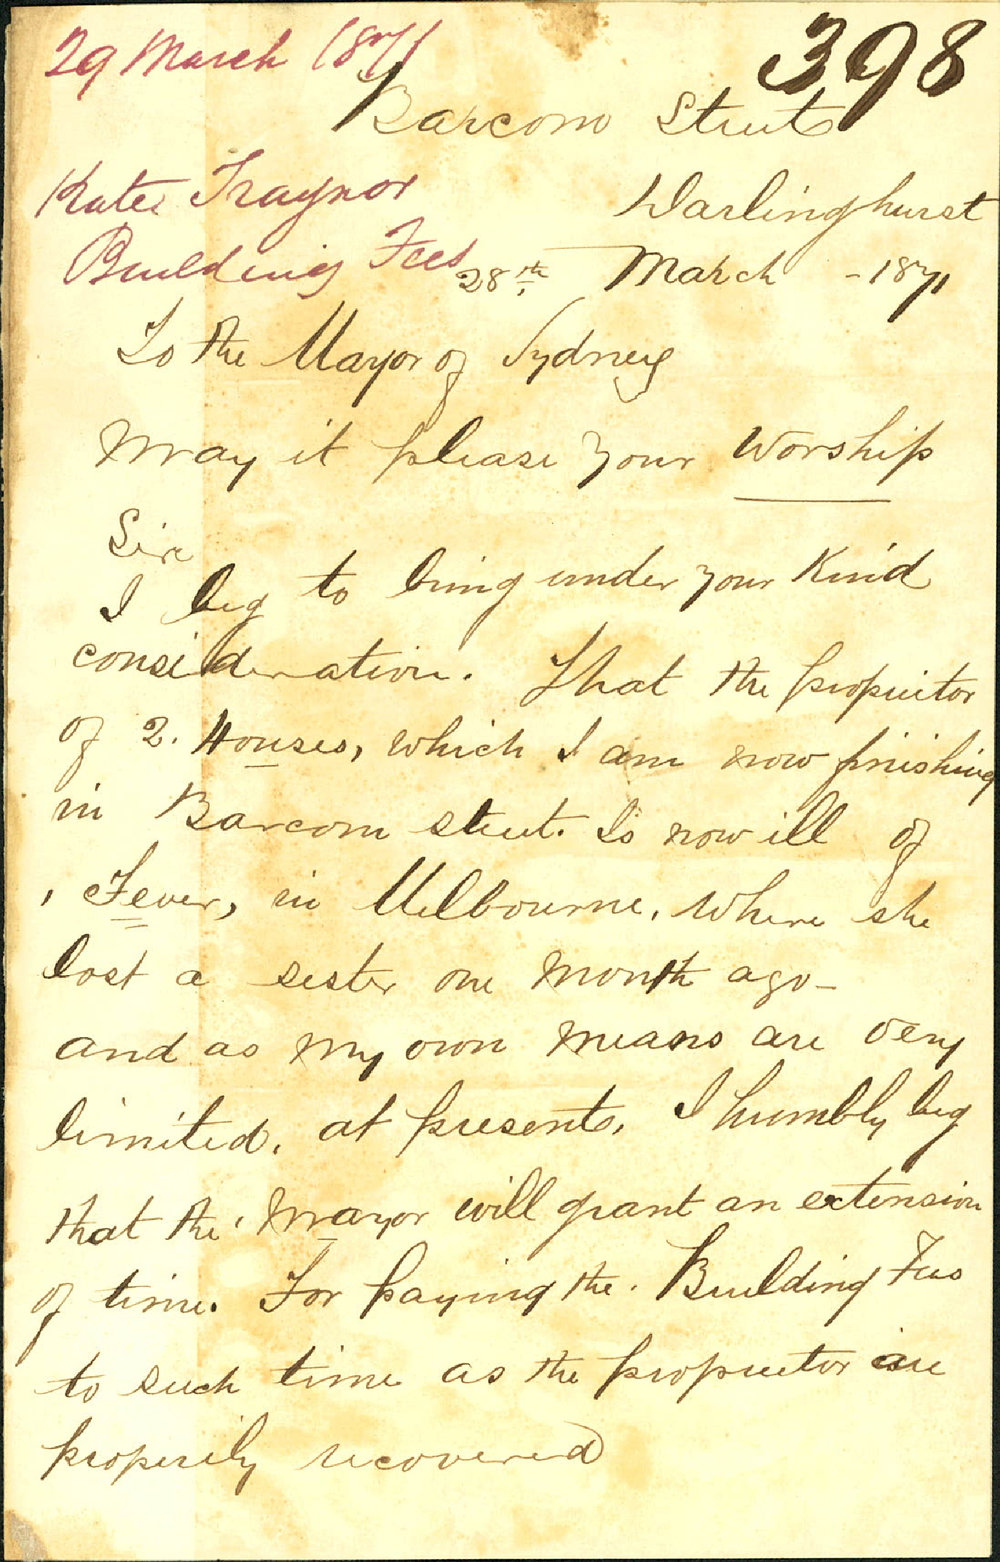 29 March 1871
398
Barcom Street
Kate Traynor
Darlinghurst
Building Fees
28th March - 1871
To the Mayor of Sydney
May it please your Worship
Sir
I beg to bring under your Kind
consideration. That the propritor
of 2. Houses, which I am now finishing
in Barcom street. Is now ill of
, Fever, in Melbourne, where she
lost a sister one Month ago -
and as My own Means are very
limited, at present, I humbly beg
that the Mayor will grant an extension
of time. For paying the. Building Fees
to such time as the proprietor are
properily recovered